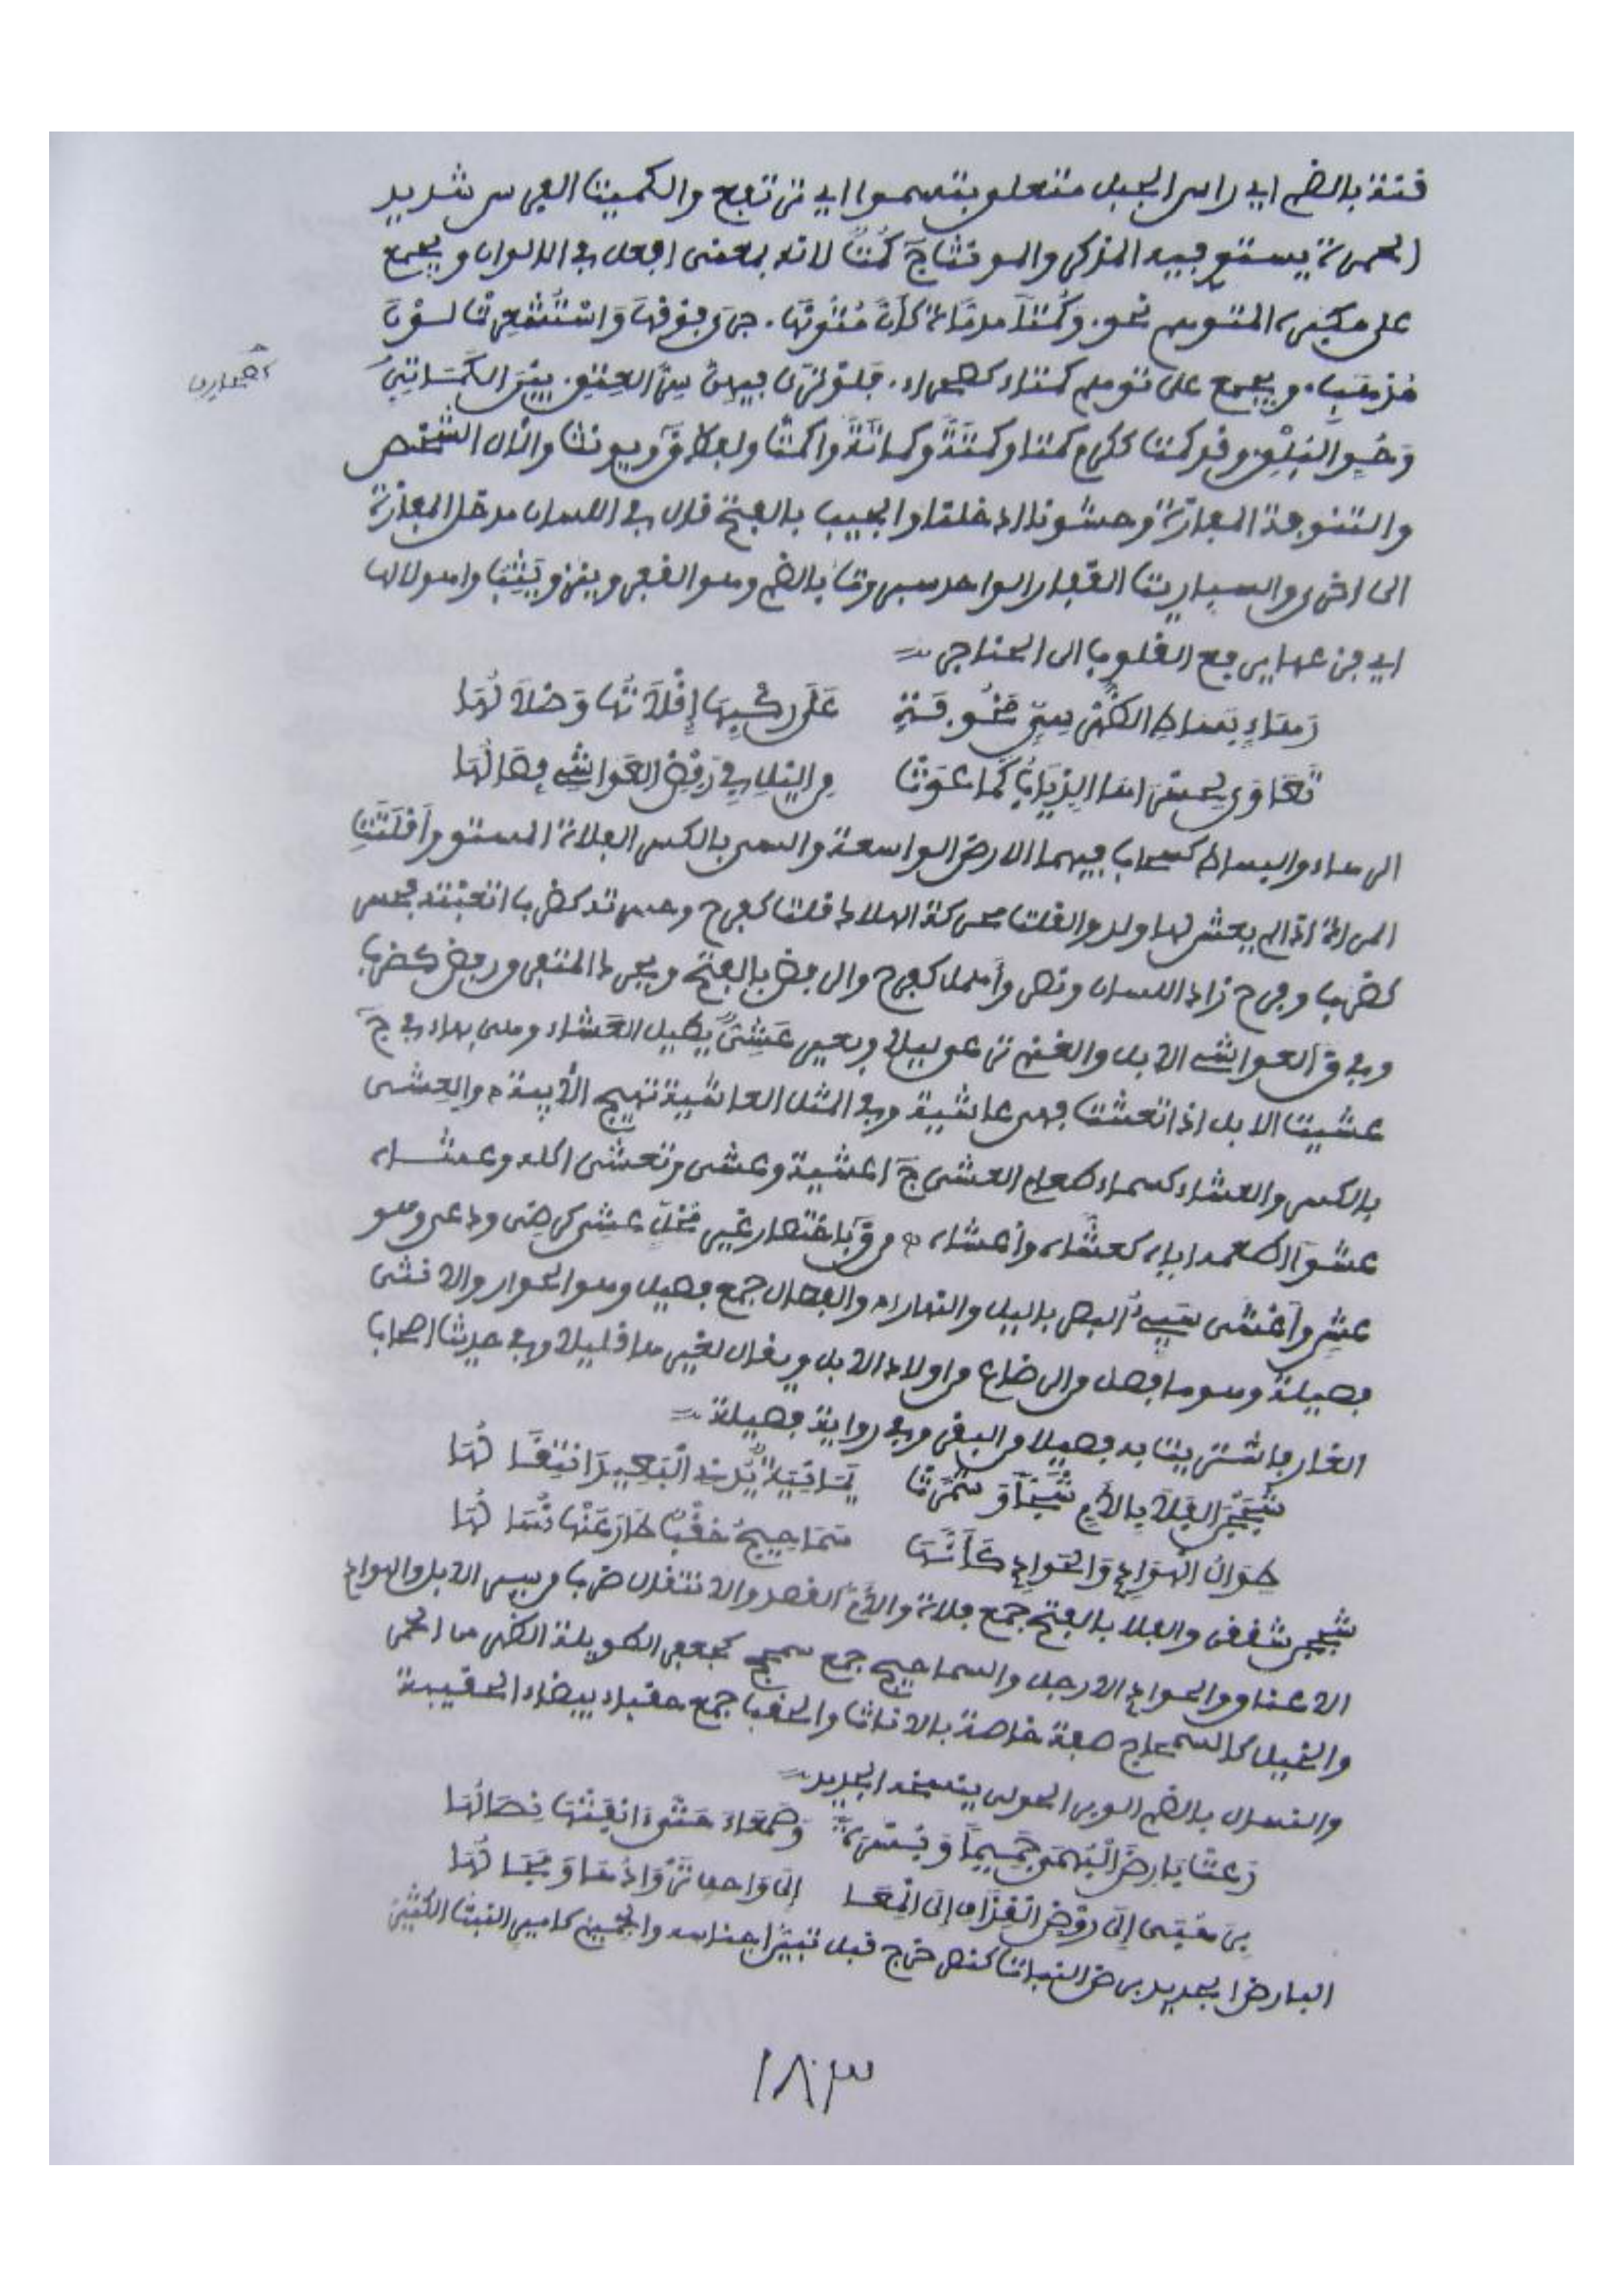 قنة بالضم اي راس الجبل متعلق بتسموا اي ترتفع والكميت الفرس شديد
الحمرة يستوي فيه المذكر والمونث ج كُمْتٌ لانه بمعنى افعل في الالوان ويجمع
على مكبره المتوهم نحو. وكُمْتاً مدمّاة كأنّ متونها. جرى فوقها واستشعرت لون
مُذهب. ويجمع على توهم كمتاء كصحراء.
كصحارى
وقد كمت ككرم كمتا وكمتة وكماتة واكمت والآل الشخص
والتنوفة المفازة وحشوت اي دخلت والجيب بالفتح قال في اللسان مدخل المفازة
الى اخرى والسباريت القفار الواحد سبروت بالضم وهو القفر
اي فزعها يرفع القلوب الى الحناجر
رهاء بساط الظهر سيّ مخوفة على ركبها إقلاتها وضلالها
تعاوى لحسراها الذياب كما عوت من الليل في رفض العواشي فصالها
الرهاء والبساط كسحاب فيهما الارض الواسعة والسي بالكسر الفلاة المستوية وأقلتت
المرأة اذا لم يعش لها ولد والقلت محركة الهلاك قلت كفرح وحسرته كضرب اتعبته فحسر
كضرب وفرح زاد اللسان ونصر وأهمل كفرح والرفض بالفتح ويحرك المتفرق ورفض كضرب
وفي ق العواشي الابل والغنم ترعى ليلا وبعير عَشِيٌّ يطيل العشاء وهي بهاء وفي ج
عشيت الابل اذا تعشت فهي عاشية وفي المثل العاشية تهيج الأبية والعشي
بالكسر والعشاء كسماء طعام العشي ج اعشية وعشى وتعشى اكله وعشاه
عشوا اطعمه اياه كعشّاه وأعشاه ه من ق باختصار غير مخل عشي كرضي ودعى وهو
عشٍ وأعشى سيّئ البصر بالليل والنهار ه والفصال جمع فصيل وهو الحوار والانثى
فصيلة وهو ما فصل من الرضاع من اولاد الابل ويقال لغيرها قليلا وفي حديث اصحاب
الغار فاشتريت به فصيلا من البقر وفي رواية فصيلة
شججن الفلا بالأمّ شجّاً وشمّرت يمانية يُدني البعيد انتقالها
طوال الهوادي والحوادي كأنها سماحيج حقب طار عنها نسالها
شججن شققن والفلا بالفتح جمع فلاة والأمّ القصد والانتقال ضرب من سير الابل والهوادي
الاعناق والحوادي الارجل والسماحيج جمع سمحج كجعفر الطويلة الظهر من الحمر
والخيل كالسمحاج صفة خاصة بالاناث والحقب جمع حقباء بيضاء الحقيبة
والنسال بالضم الوبر الحولي ينسخه الجديد
رعت بارض البهمى جميما وبسرة وصمعاء حتى آنفتها نصالها
الى روض القذاف الى المعا الى واحف تروادها ومجالها
البارض الجديد برض النبات كنصر خرج قبل تبين اجناسه والجميم كامير النبت الكثير
١٨٣